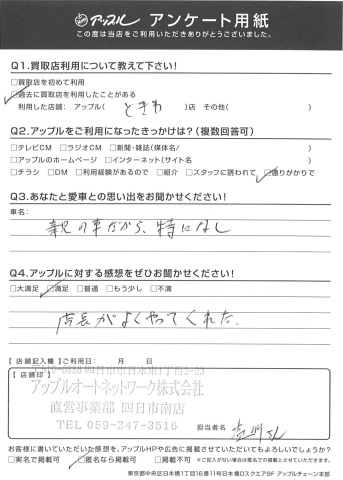 アップル アンケート用紙
この度は当店をご利用いただきありがとうございました。
Q1.買取店利用について教えて下さい!
□買取店を初めて利用
□過去に買取店を利用したことがある
利用した店舗: アップル( ときわ )店 その他( )
Q2.アップルをご利用になったきっかけは?(複数回答可)
□テレビCM □ラジオCM □新聞・雑誌(媒体名/ )
□アップルのホームページ □インターネット(サイト名 )
□チラシ □DM □利用経験があるので □紹介 □スタッフに誘われて □通りがかりで
Q3.あなたと愛車との思い出をお聞かせください!
車名:
親の車だから、特になし
Q4.アップルに対する感想をぜひお聞かせください!
□大満足 □満足 □普通 □もう少し □不満
店長がよくやってくれた.
【店舗記入欄】ご利用日: 月 日
【店舗印】
〒510-0886 四日市市日永東1丁目2-23
アップルオートネットワーク株式会社
直営事業部 四日市南店
TEL 059-347-3516
担当者名
お客様に書いていただいた感想を、アップルHPや広告に掲載させていただいてもよろしいでしょうか?
□実名で掲載可 □匿名なら掲載可 □掲載不可 ※ご記入がない場合は匿名での掲載とさせていただきます。
東京都中央区日本橋1丁目16番11号日本橋Dスクエア9F アップルチェーン本部